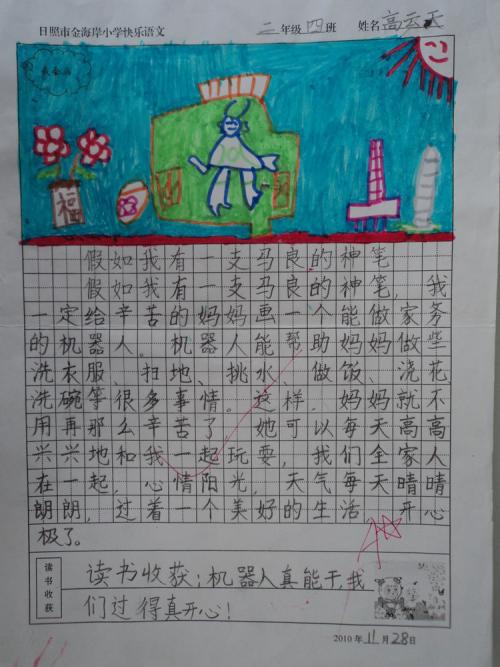 日照市金海岸小学快乐语文 二年级四班 姓名高云天
福
假如我有一支马良的神笔
假如我有一支马良的神笔，我
一定给辛苦的妈妈画一个能做家务
的机器人。机器人能帮助妈妈做些
洗衣服、扫地、挑水、做饭、浇花、
洗碗等很多事情。这样，妈妈就不
用再那么辛苦了 她可以每天高高
兴兴地和我一起玩耍，我们全家人
在一起，心情阳光，天气每天晴晴
朗朗，过着一个美好的生活，开心
极了。
读书收获
读书收获：机器人真能干，我
们过得真开心！
2010年11月28日